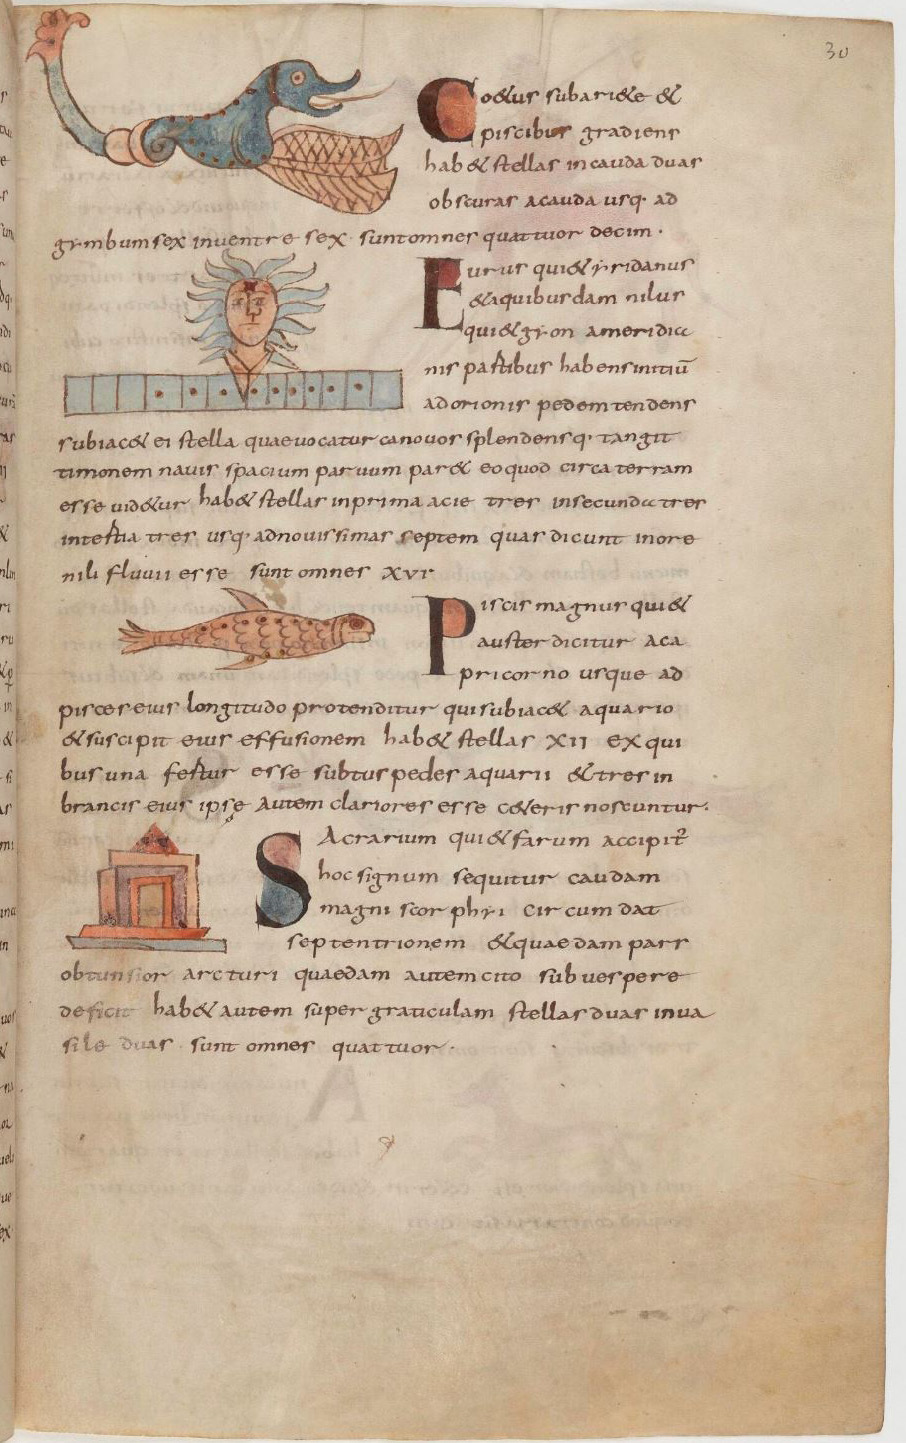 30
Coetus subariete et
piscibus gradiens
habet stellas incauda duas
obscuras acauda usq· ad
gymbum sex inventre sex · suntomnes quattuor decim ·
Eurus qui et yridanus
et aquibusdam nilus
qui et gyon ameridia
nis partibus habensinitiū
adorionis pedem tendens
subiacet ei stella quaevocatur canovos splendensq· tangit
timonem navis spacium parvum paret eoquod circa terram
esse videtur habet stellas inprima acie tres insecunda tres
intertia tres usq· adnovissimas septem quas dicunt inore
nili fluvii esse sunt omnes xvi
Piscis magnus qui et
auster dicitur aca
pricorno usque ad
pisces eius longitudo protenditur qui subiacet aquario
et suscipit eius effusionem habet stellas XII ex qui
bus una fertur esse subtus pedes aquarii et tres in
brancis eius ipsę autem clariores esse ceteris noscuntur·
SAcrarium qui et farum accipitr̄
hoc signum sequitur caudam
magni scorphyi circumdat
septentrionem et quaedam pars
obtunsior arcturi quaedam autem cito sub vespere
deficit habet autem super graticulam stellas duas inva
sile duas sunt omnes quattuor ·